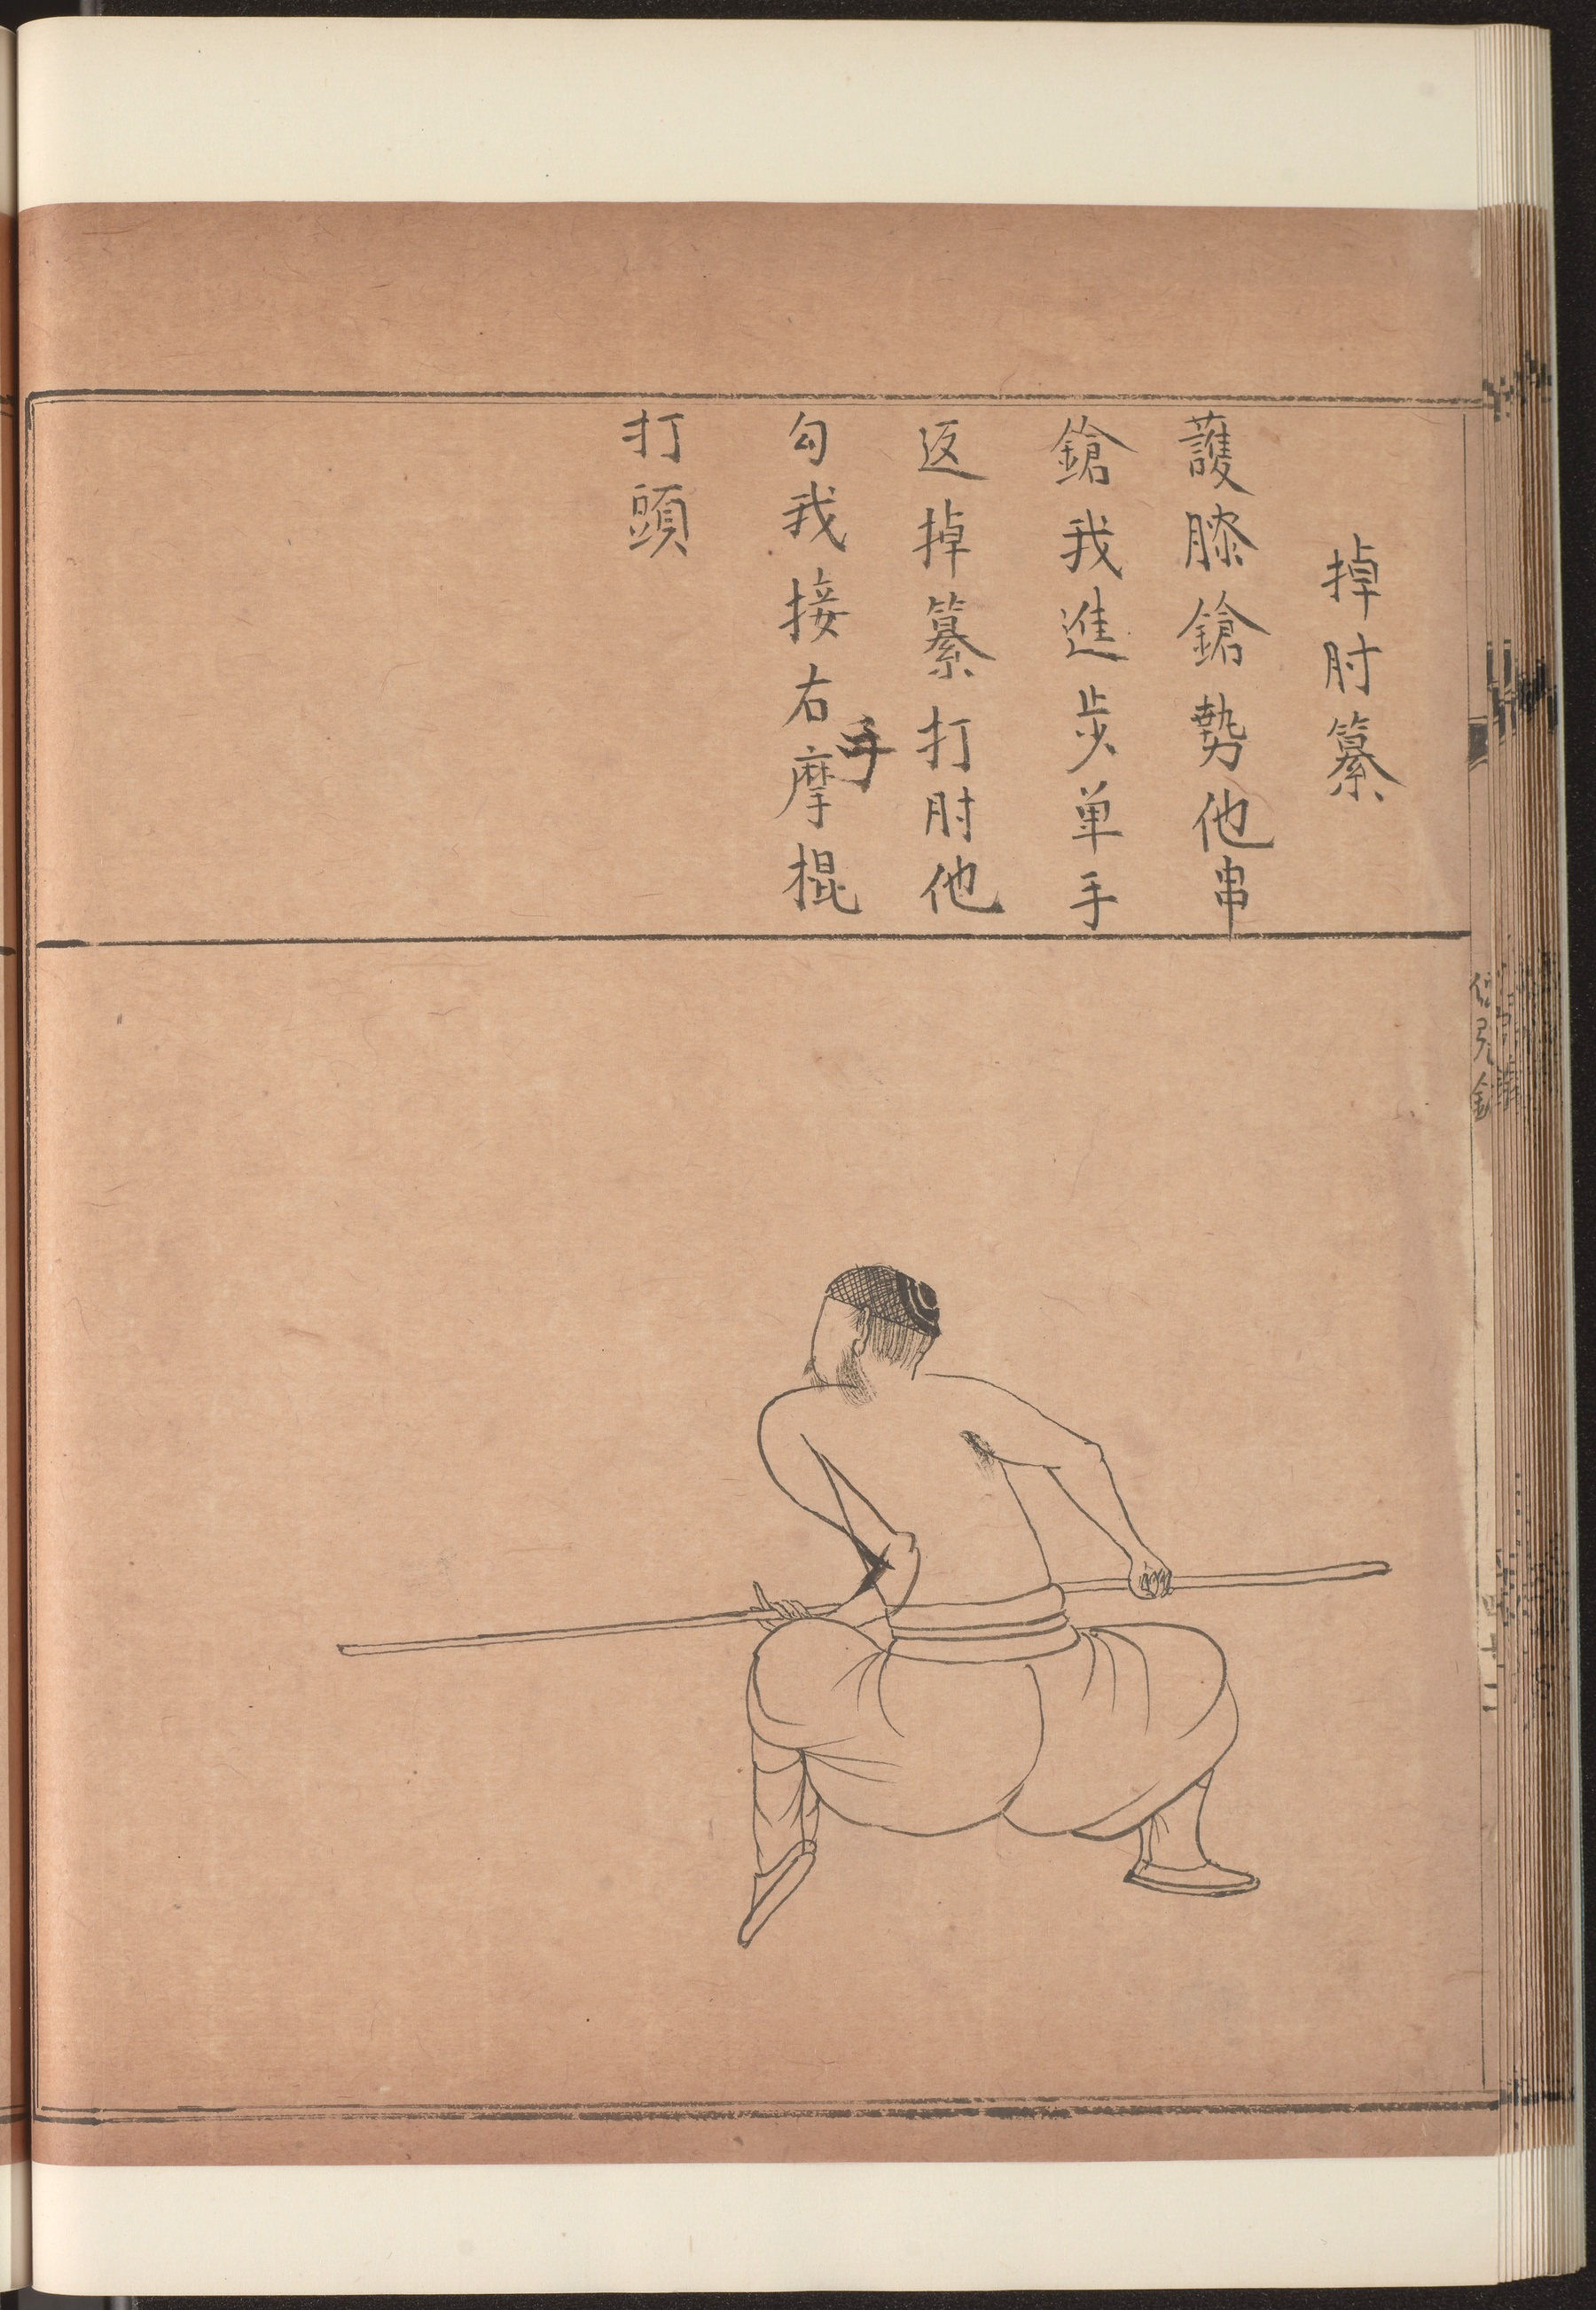 掉肘纂
護膝鎗勢他串
鎗我進步单手
返掉纂打肘他
勾我接右手摩棍
打頭